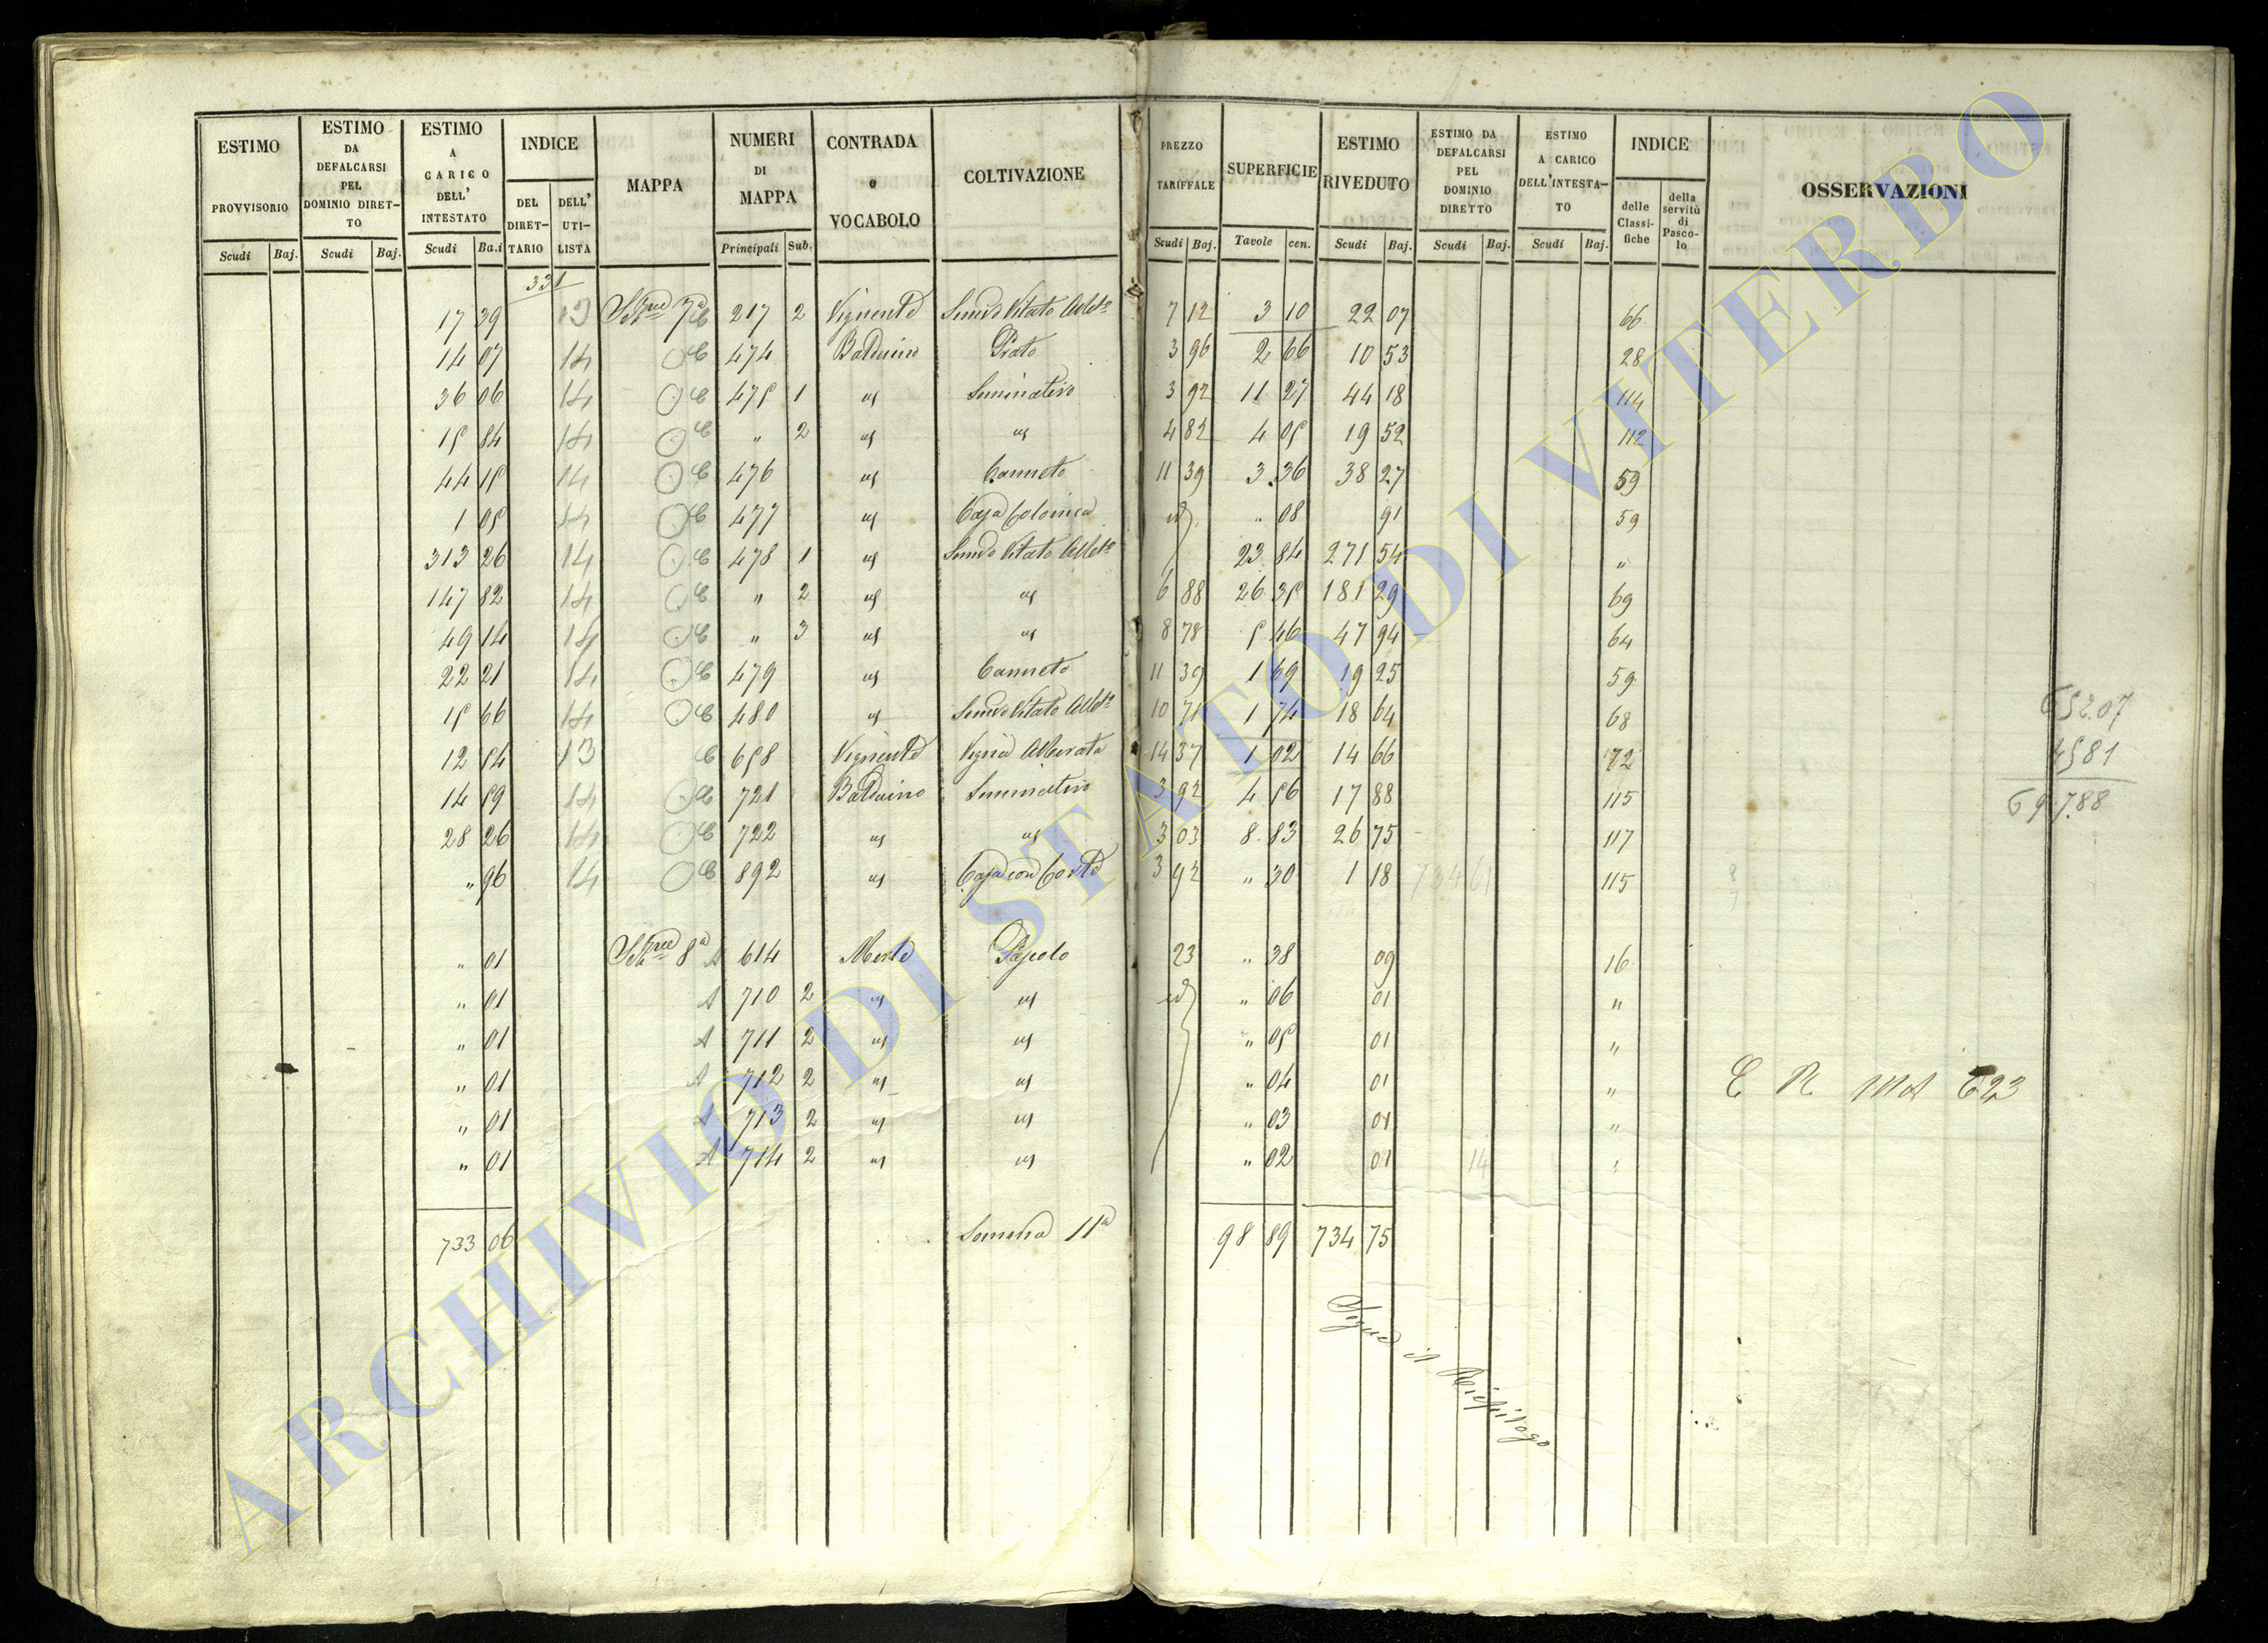 ESTIMO PROVVISORIO | ESTIMO DA DEFALCARSI PEL DOMINIO DIRETTO | ESTIMO A CARICO DELL' INTESTATO | INDICE | MAPPA | NUMERI DI MAPPA | CONTRADA e VOCABOLO | COLTIVAZIONE | PREZZO TARIFFALE | SUPERFICIE | ESTIMO RIVEDUTO | ESTIMO DA DEFALCARSI PEL DOMINIO DIRETTO | ESTIMO A CARICO DELL'INTESTATO | INDICE | OSSERVAZIONI
DEL DIRETTARIO | DELL' UTILISTA | delle Classifiche | della servitù di Pascolo
Scudi | Baj. | Scudi | Baj. | Scudi | Ba.i | Principali | Sub. | Scudi | Baj. | Tavole | cen. | Scudi | Baj. | Scudi | Baj. | Scudi | Baj.
331
17 39 | 13 | 7ª C | 217 | 2 | 7 12 | 3 10 | 22 07 | 66
14 07 | 14 | C | 474 | Balduino | Prato | 3 96 | 2 66 | 10 53 | 28
36 06 | 14 | C | 475 | 1 | id | Seminativo | 3 92 | 11 27 | 44 18 | 114
15 84 | 14 | C | " | 2 | id | id | 4 82 | 4 05 | 19 52 | 112
44 15 | 14 | C | 476 | id | Canneto | 11 39 | 3 36 | 38 27 | 59
1 05 | 14 | C | 477 | id | Casa Colonica | id | " 08 | 91 | 59
313 26 | 14 | C | 478 | 1 | id | 23 84 | 271 54 | "
147 82 | 14 | C | " | 2 | id | id | 6 88 | 26 35 | 181 29 | 69
49 14 | 14 | C | " | 3 | id | id | 8 78 | 5 46 | 47 94 | 64
22 21 | 14 | C | 479 | id | Canneto | 11 39 | 1 69 | 19 25 | 59
15 66 | 14 | C | 480 | id | 10 71 | 1 74 | 18 64 | 68
12 54 | 13 | C | 658 | Vigna Alberata | 14 37 | 1 02 | 14 66 | 72
14 59 | 14 | C | 721 | Balduino | Seminativo | 3 92 | 4 56 | 17 88 | 115
28 26 | 14 | C | 722 | id | id | 3 03 | 8 83 | 26 75 | 117
" 96 | 14 | C | 892 | id | Casa con Corte | 3 92 | " 30 | 1 18 | 734 61 | 115
" 01 | 8ª A | 614 | Pascolo | 23 | " 38 | 09 | 16
" 01 | A | 710 | 2 | id | id | id | " 06 | 01 | "
" 01 | A | 711 | 2 | id | id | " 05 | 01 | "
" 01 | A | 712 | 2 | id | id | " 04 | 01 | "
" 01 | A | 713 | 2 | id | id | " 03 | 01 | "
" 01 | A | 714 | 2 | id | id | " 02 | 01 | 14
733 06 | Somma 11ª | 98 89 | 734 75
Segue il Riepilogo
652.07
4581
697.88
ARCHIVIO DI STATO DI VITERBO